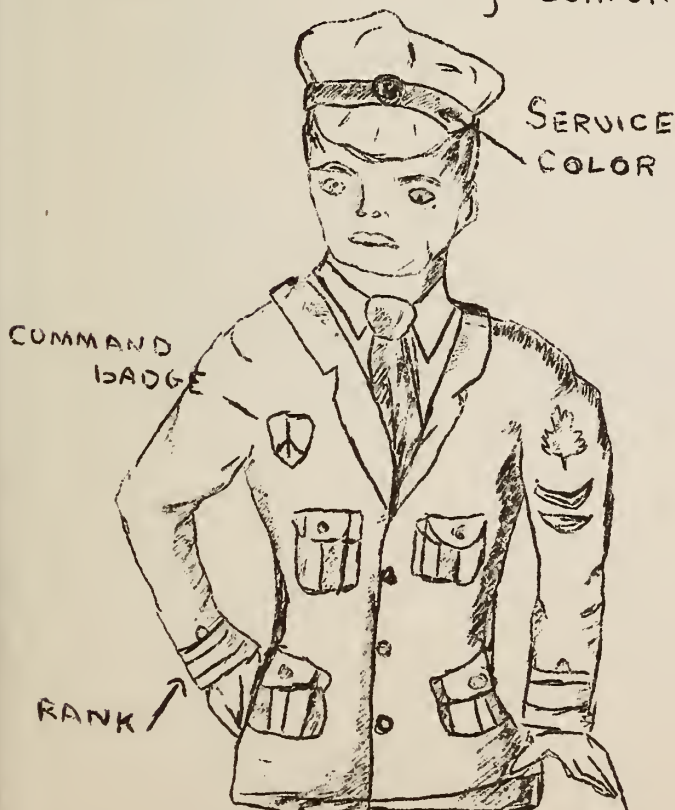 SERVICE
COLOR
COMMAND
BADGE
RANK